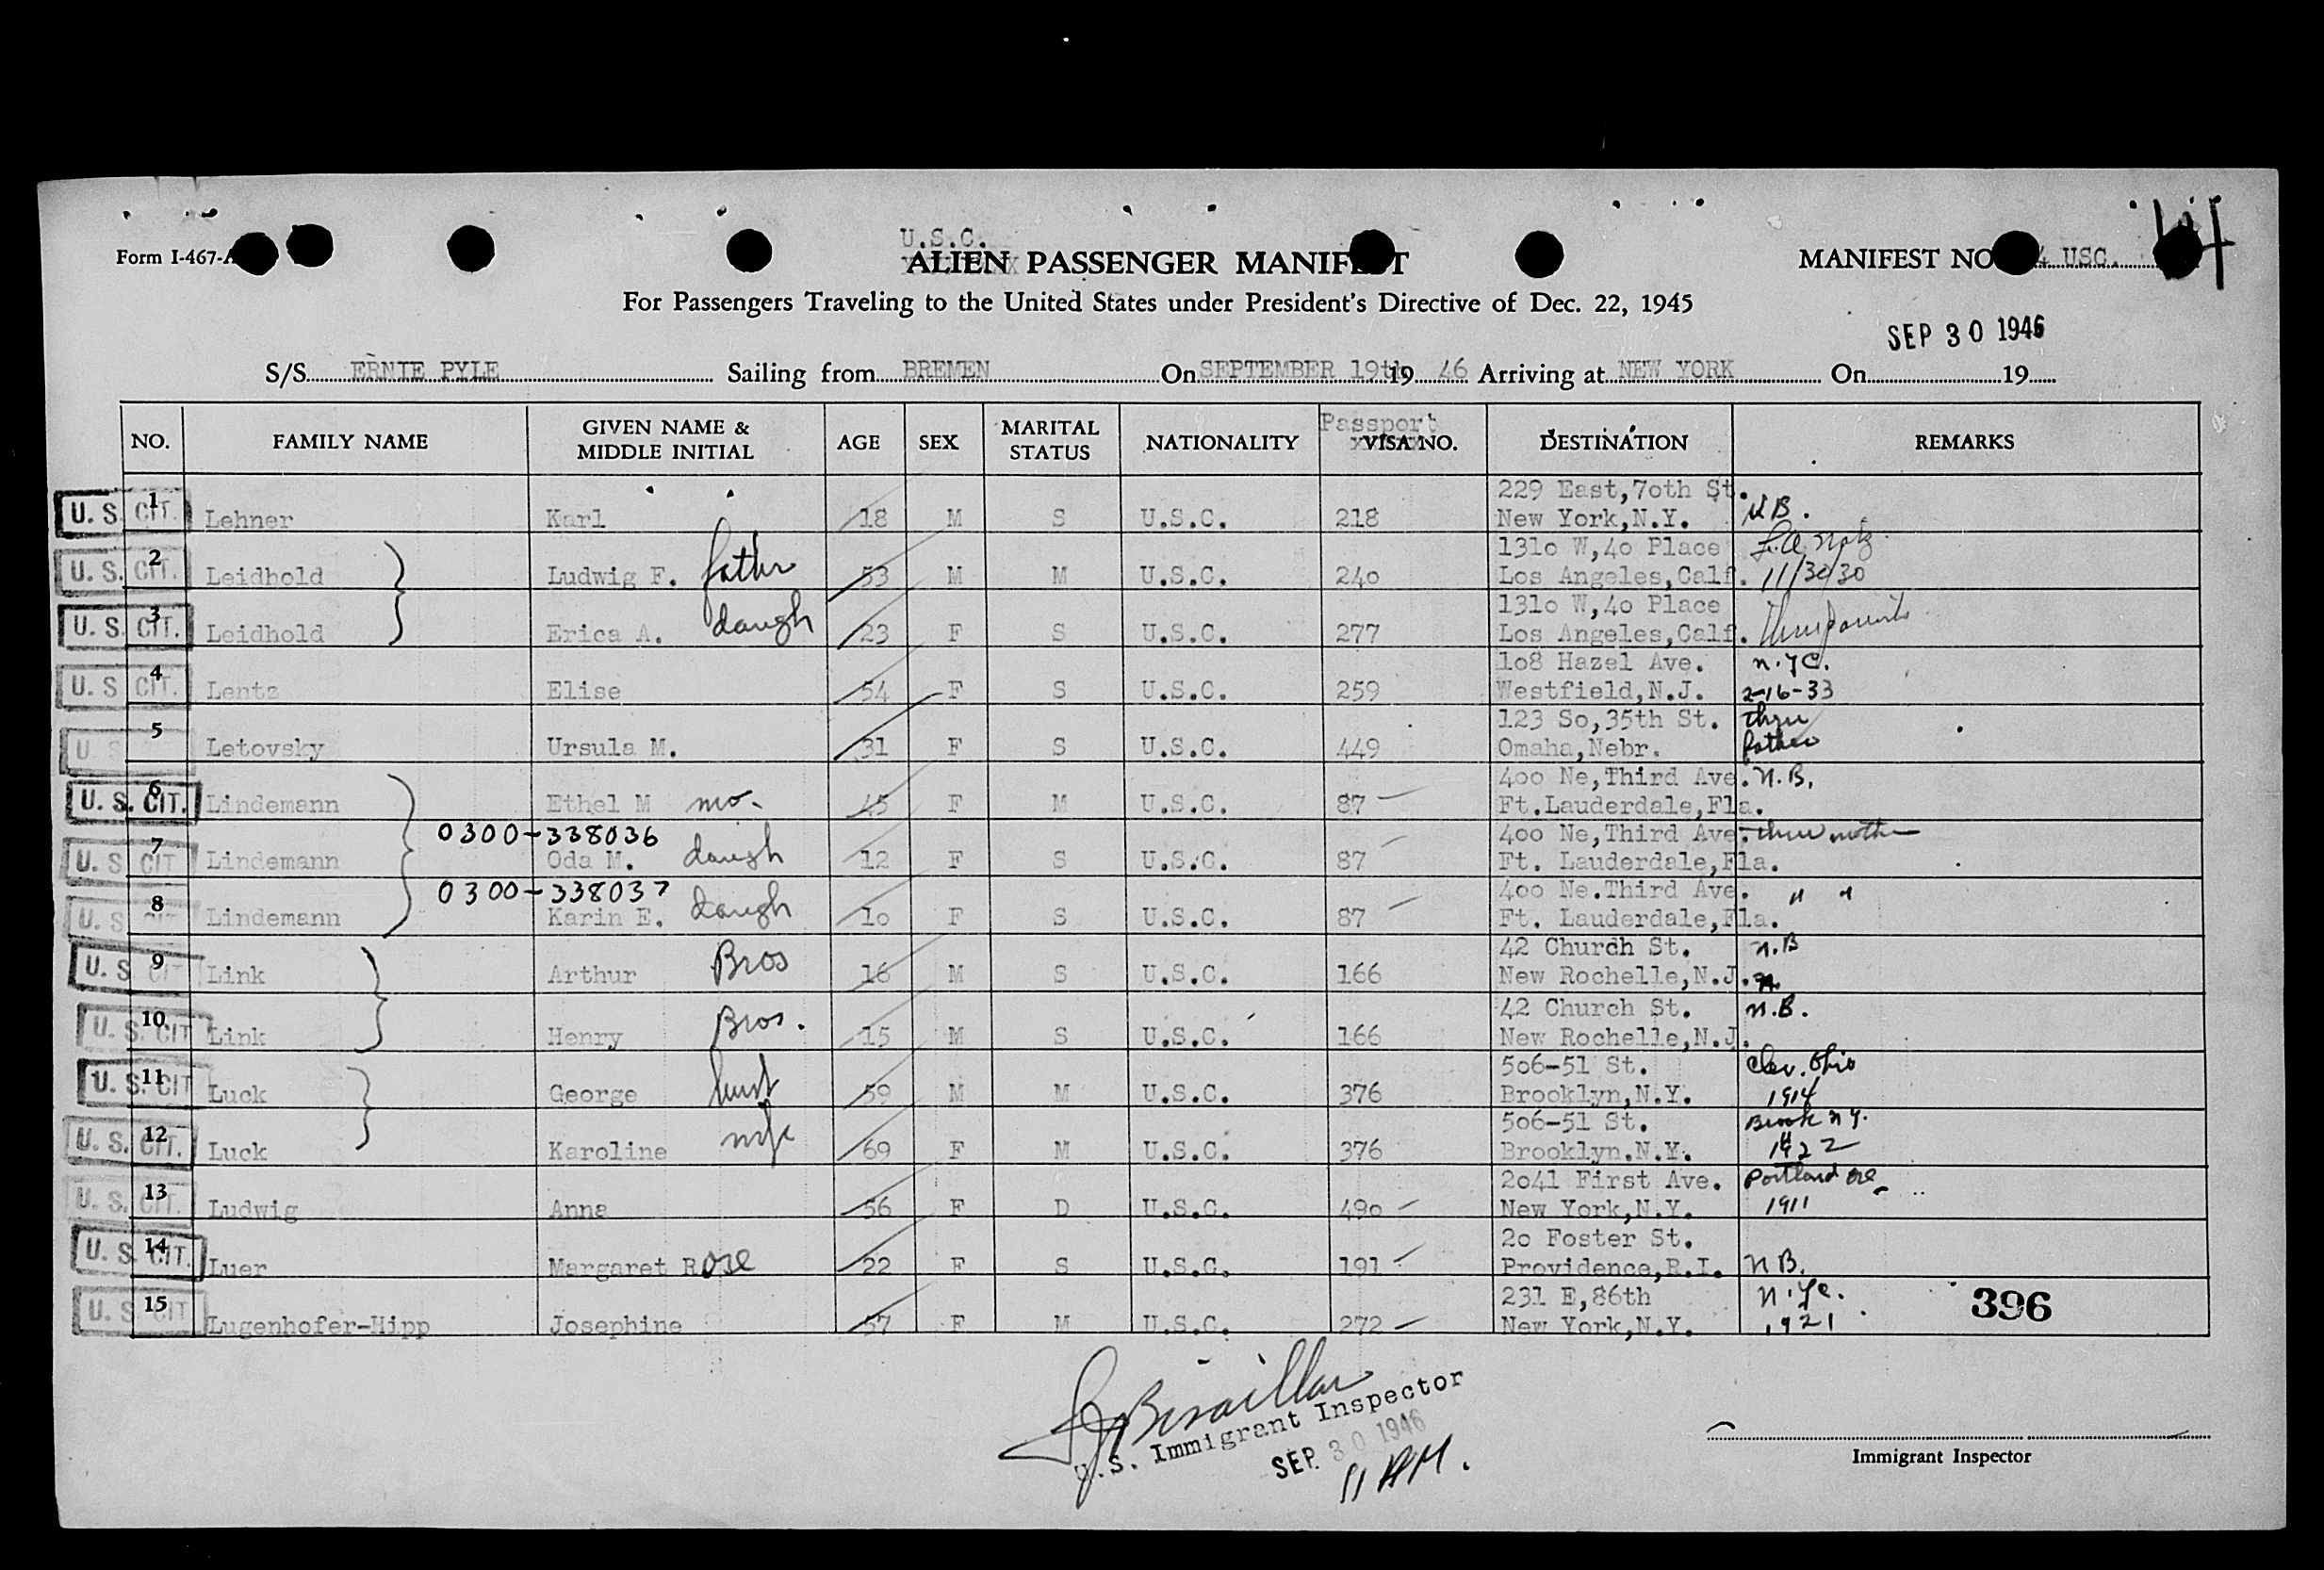 Form I-467-A
U.S.C.
ALIEN PASSENGER MANIFEST
MANIFEST NO. 4 USC.
For Passengers Traveling to the United States under President's Directive of Dec. 22, 1945
SEP 30 1946
S/S ERNIE PYLE Sailing from BREMEN On SEPTEMBER 19th 19 46 Arriving at NEW YORK On 19
NO. FAMILY NAME GIVEN NAME & MIDDLE INITIAL AGE SEX MARITAL STATUS NATIONALITY Passport VISA NO. DESTINATION REMARKS
229 East,7oth St.
U.S. CIT. 1 Lehner Karl 18 M S U.S.C. 218 New York,N.Y. N.B.
131o W,4o Place L.A.
U.S. CIT. 2 Leidhold Ludwig F. father 53 M M U.S.C. 24o Los Angeles,Calf. 11/30/30
131o W,4o Place
U.S. CIT. 3 Leidhold Erica A. daugh 23 F S U.S.C. 277 Los Angeles,Calf. thru parents
1o8 Hazel Ave. N.Y.C.
U.S. CIT. 4 Lentz Elise 54 F S U.S.C. 259 Westfield,N.J. 2-16-33
123 So,35th St. thru
U.S. 5 Letovsky Ursula M. 31 F S U.S.C. 449 Omaha,Nebr. father
4oo Ne,Third Ave. N.B.
U.S. CIT. 6 Lindemann Ethel M mo. 45 F M U.S.C. 87 Ft.Lauderdale,Fla.
0300-338036 4oo Ne,Third Ave. thru mother
U.S. CIT 7 Lindemann Oda M. daugh 12 F S U.S.C. 87 Ft. Lauderdale,Fla.
0300-338037 4oo Ne.Third Ave. " "
U.S. CIT 8 Lindemann Karin E. daugh 1o F S U.S.C. 87 Ft. Lauderdale,Fla.
42 Churdh St. N.B
U.S. CIT 9 Link Arthur Bros 16 M S U.S.C. 166 New Rochelle,N.J.
42 Church St. N.B.
U.S. CIT 10 Link Henry Bros. 15 M S U.S.C. 166 New Rochelle,N.J.
5o6-51 St. Clev. Ohio
U.S. CIT 11 Luck George husb 59 M M U.S.C. 376 Brooklyn,N.Y. 1914
5o6-51 St. Brook N.Y.
U.S. CIT. 12 Luck Karoline wife 69 F M U.S.C. 376 Brooklyn.N.Y. 1922
2o41 First Ave. Portland Ore
U.S. CIT. 13 Ludwig Anna 56 F D U.S.C. 49o New York,N.Y. 1911
2o Foster St.
U.S. CIT. 14 Luer Margaret Rose 22 F S U.S.C. 191 Providence,R.I. N.B.
231 E,86th N.Y.C.
U.S. CIT 15 Lugenhofer-Hipp Josephine 57 F M U.S.C. 272 New York,N.Y. 1921
396
U.S. Immigrant Inspector
SEP 30 1946
11 AM.
Immigrant Inspector